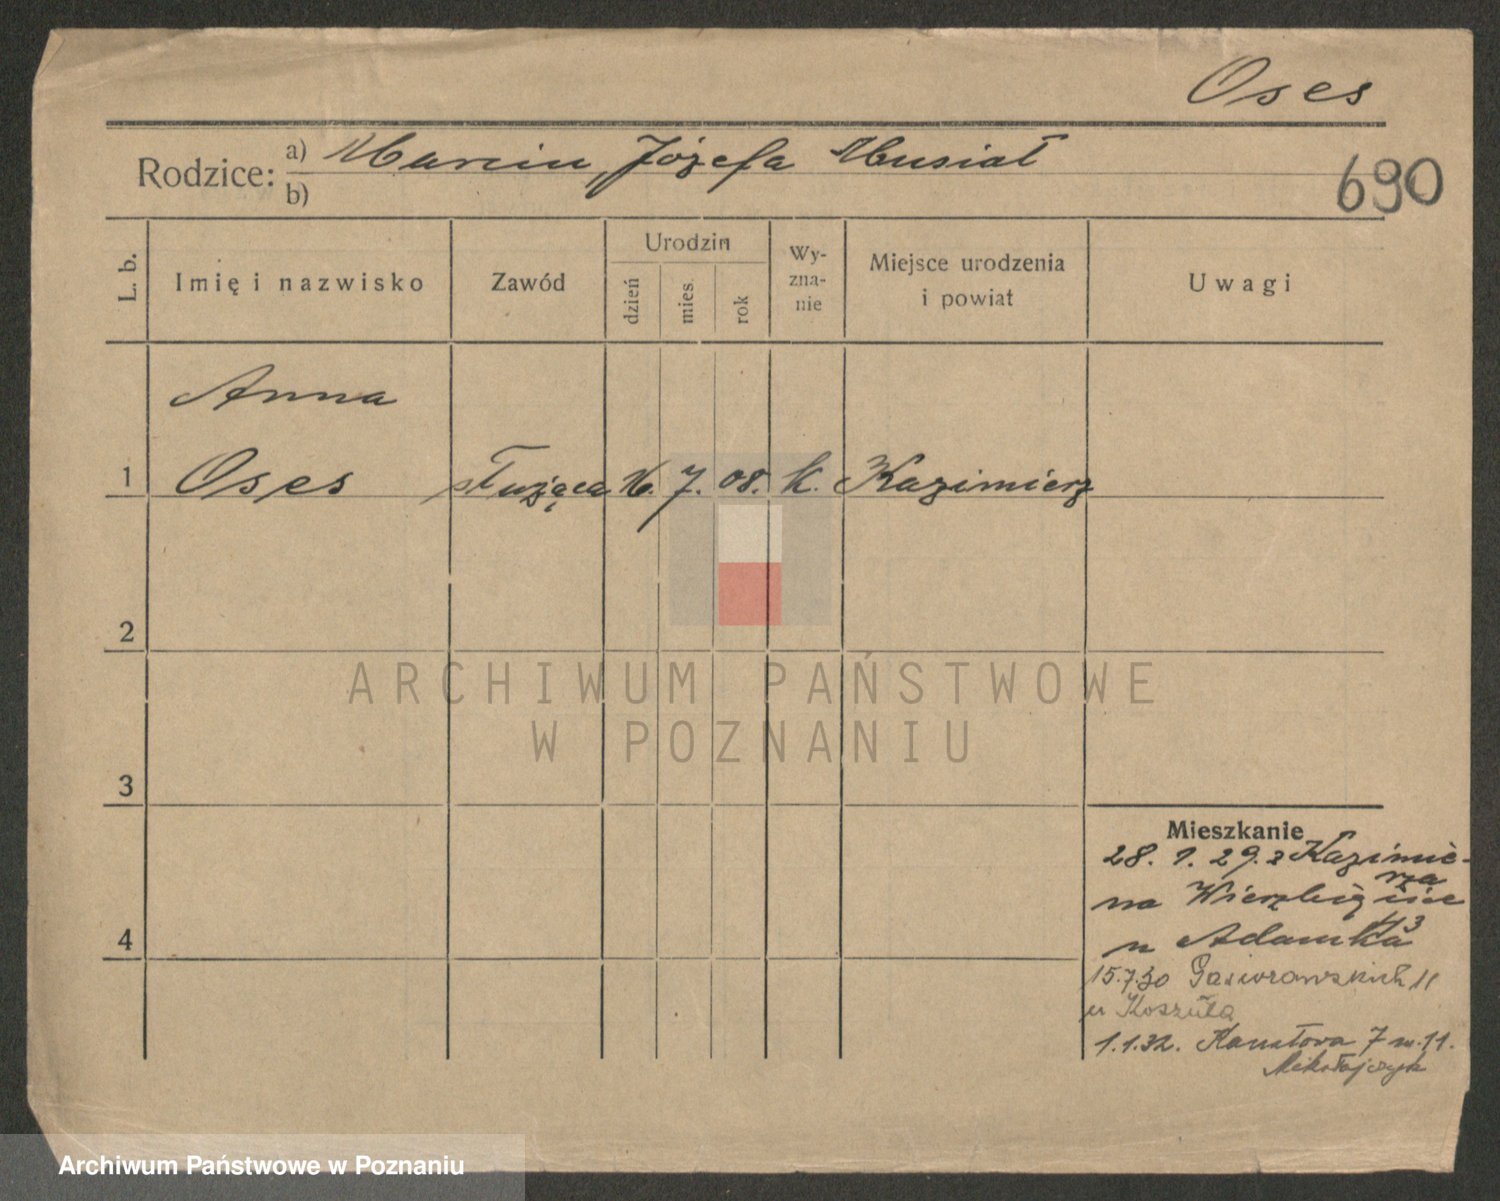 Oses
Rodzice: a) Marcin, Józefa Musiał
b)
690
L. b.
Imię i nazwisko
Zawód
Urodzin
dzień
mies.
rok
Wy-
zna-
nie
Miejsce urodzenia
i powiat
Uwagi
Anna
1 Oses służąca 16. 7. 08. k. Kazimierz
2
3
4
ARCHIWUM PAŃSTWOWE
W POZNANIU
Mieszkanie
28. 1. 29. z Kazimie-
rza
na Wierzbięcice
43
u Adamka
15.7.30 Gąsiorowskich 11
u Koszuta
1.1.32. Kanałowa 7 m. 11.
Mikołajczyk
Archiwum Państwowe w Poznaniu